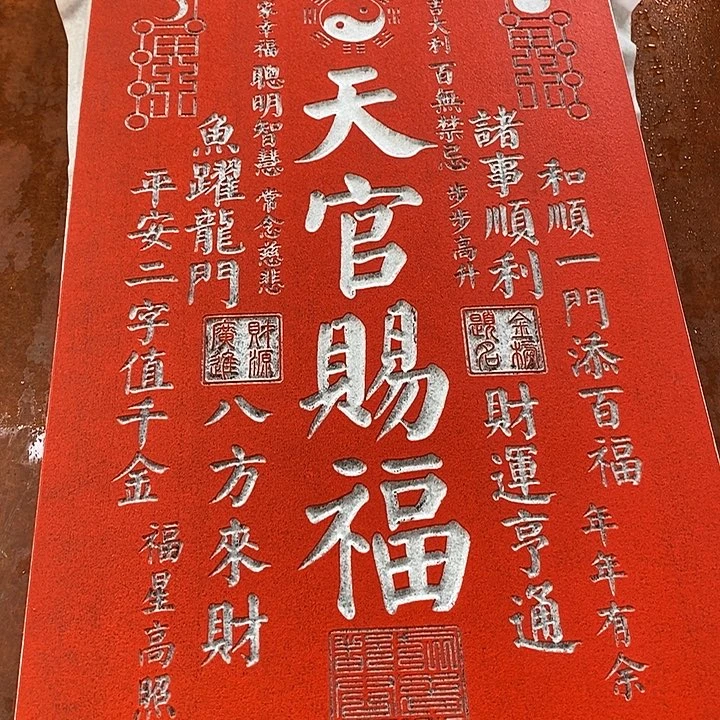 和順一門添百福
年年有余
諸事順利
金榜題名
財運亨通
大利
百無禁忌
步步高升
天官賜福
家幸福
聰明智慧
常念慈悲
魚躍龍門
財源廣進
八方來財
平安二字值千金
福星高照